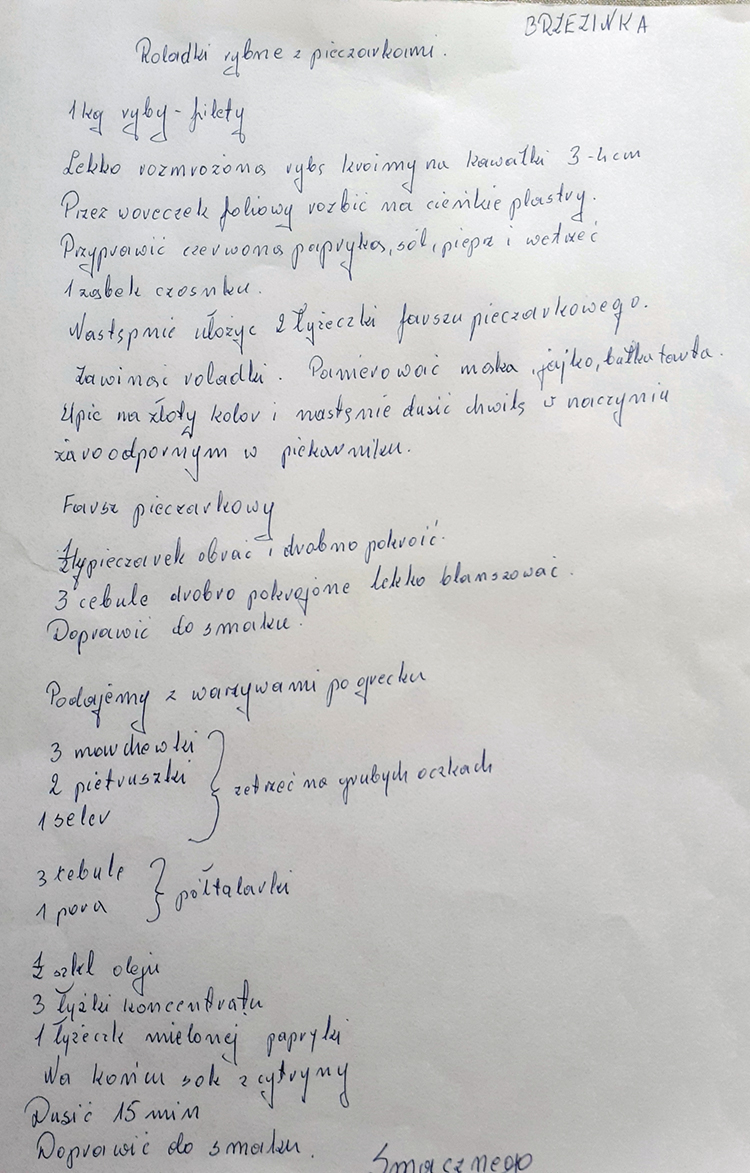 BRZEZINKA
Roladki rybne z pieczarkami.
1 kg ryby - filety
Lekko rozmrożoną rybę kroimy na kawałki 3-4 cm
Przez woreczek foliowy rozbić na cieńkie plastry.
Przyprawić czerwoną papryką, sól, pieprz i wetrzeć
1 ząbek czosnku.
Następnie ułożyć 2 łyżeczki farszu pieczarkowego.
Zawinąć roladki. Panierować mąka, jajko, bułka tarta.
Upiec na złoty kolor i nastęnie dusić chwilę w naczyniu
żaroodpornym w piekarniku.
Farsz pieczarkowy
pieczarek obrać i drobno pokroić.
3 cebule drobro pokrojone lekko blanszować.
Doprawić do smaku.
Podajemy z warzywami po grecku
3 marchewki
2 pietruszki } zetrzeć na grubych oczkach
1 seler
3 cebule } półtalarki
1 pora
1/2 szkl oleju
3 łyżki koncentratu
1 łyżeczk mielonej papryki
Na końcu sok z cytryny
Dusić 15 min
Doprawić do smaku.
Smacznego